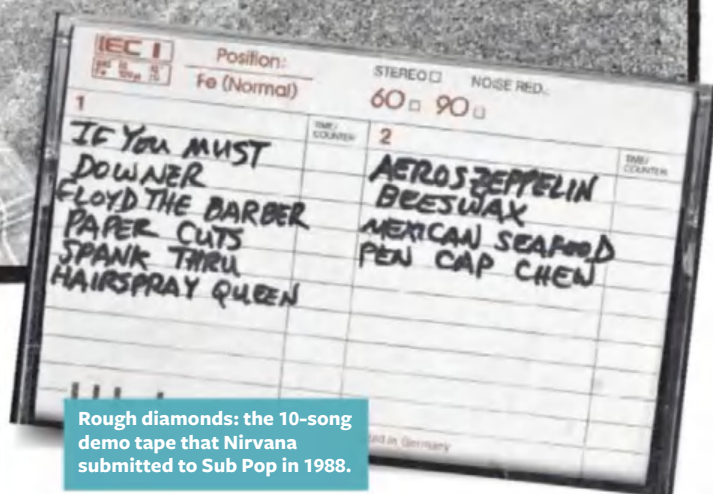 IEC I
Position:
Fe (Normal)
STEREO
NOISE RED.
60 90
1
TIME/
COUNTER
IF YOU MUST
DOWNER
FLOYD THE BARBER
PAPER CUTS
SPANK THRU
HAIRSPRAY QUEEN
2
TIME/
COUNTER
AEROSZEPPELIN
BEESWAX
MEXICAN SEAFOOD
PEN CAP CHEW
in Germany
Rough diamonds: the 10-song
demo tape that Nirvana
submitted to Sub Pop in 1988.